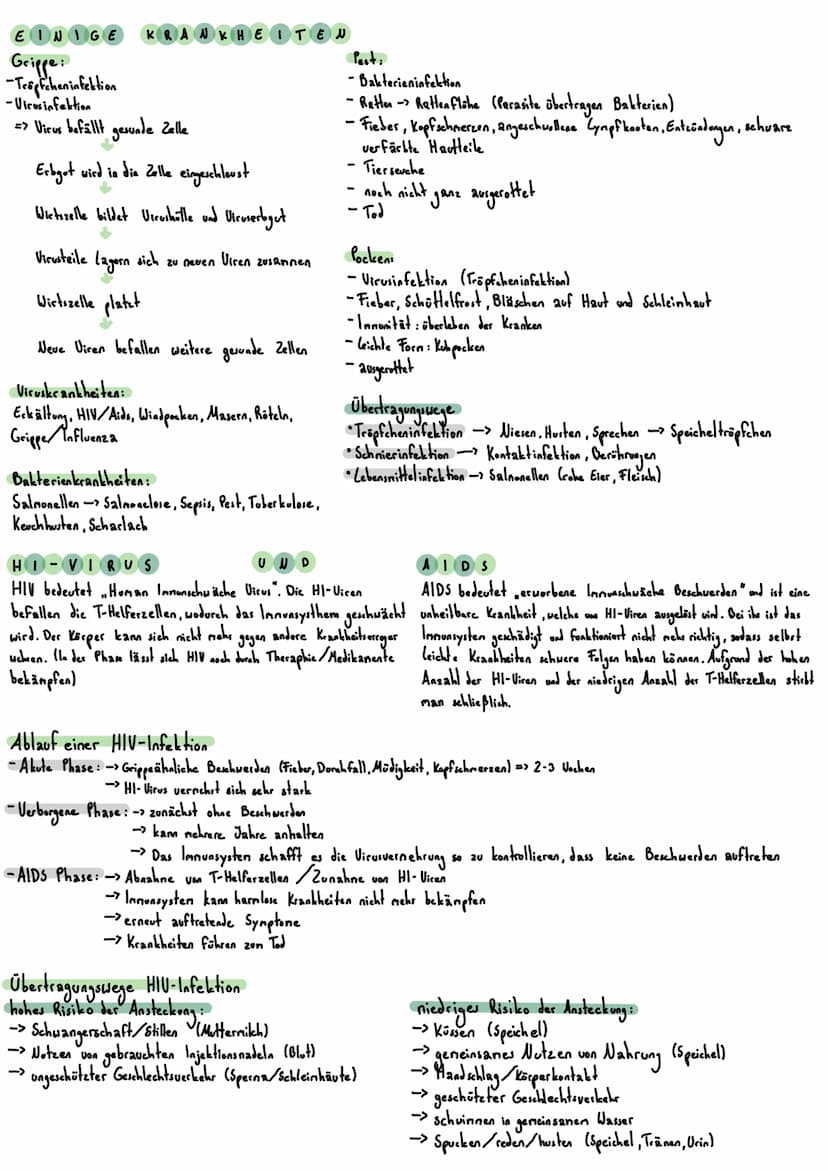 EINIGE KRANKHEITEN
Grippe:
- Tröpfcheninfektion
- Virusinfektion
=> Virus befällt gesunde Zelle
Erbgut wird in die Zelle eingeschleust
Wirtszelle bildet Virushülle und Viruserbgut
Virusteile lagern sich zu neuen Viren zusammen
Wirtszelle platzt
Neue Viren befallen weitere gesunde Zellen
Viruskrankheiten:
Erkältung, HIV/Aids, Windpocken, Masern, Röteln,
Grippe/Influenza
Bakterienkrankheiten:
Salmonellen -> Salmonelose, Sepsis, Pest, Tuberkulose,
Keuchhusten, Scharlach
Pest:
- Bakterieninfektion
- Ratten -> Rattenflöhe (Parasite übertragen Bakterien)
- Fieber, Kopfschmerzen, angeschwollene Lympfknoten, Entzündungen, schwarz
verfärbte Hautteile
- Tierseuche
- noch nicht ganz ausgerottet
- Tod
Pocken:
- Virusinfektion (Tröpfcheninfektion)
- Fieber, Schüttelfrost, Bläschen auf Haut und Schleinhaut
- Immunität: überleben der Kranken
- leichte Form: Kuhpocken
- ausgerottet
Übertragungswege
• Tröpfcheninfektion -> Niesen, Husten, Sprechen -> Speicheltröpfchen
• Schmierinfektion -> Kontaktinfektion, Berührungen
• Lebensmittelinfektion -> Salmonellen (rohe Eier, Fleisch)
HI-VIRUS UND AIDS
HIV bedeutet „Human Immunschwäche Virus". Die HI-Viren
befallen die T-Helferzellen, wodurch das Immunsysthem geschwächt
wird. Der Körper kann sich nicht mehr gegen andere Krankheitserreger
wehren. (In der Phase lässt sich HIV noch durch Theraphie/Medikamente
bekämpfen)
AIDS bedeutet „erworbene Immunschwäche Beschwerden" und ist eine
unheilbare Krankheit, welche von HI-Viren ausgelöst wird. Bei ihr ist das
Immunsystem geschädigt und funktioniert nicht mehr richtig, sodass selbst
leichte Krankheiten schwere Folgen haben können. Aufgrund der hohen
Anzahl der HI-Viren und der niedrigen Anzahl der T-Helferzellen stirbt
man schließlich.
Ablauf einer HIV-Infektion
- Akute Phase: -> Grippeähnliche Beschwerden (Fieber, Durchfall, Müdigkeit, Kopfschmerzen) => 2-3 Wochen
-> HI-Virus vermehrt sich sehr stark
- Verborgene Phase: -> zunächst ohne Beschwerden
-> kann mehrere Jahre anhalten
-> Das Immunsystem schafft es die Virusvermehrung so zu kontrollieren, dass keine Beschwerden auftreten
- AIDS Phase: -> Abnahme von T-Helferzellen / Zunahme von HI-Viren
-> Immunsystem kann harmlose Krankheiten nicht mehr bekämpfen
-> erneut auftretende Symptome
-> Krankheiten führen zum Tod
Übertragungswege HIV-Infektion
hohes Risiko der Ansteckung:
-> Schwangerschaft/Stillen (Muttermilch)
-> Nutzen von gebrauchten Injektionsnadeln (Blut)
-> ungeschützter Geschlechtsverkehr (Sperma/Schleinhäute)
niedriges Risiko der Ansteckung:
-> Küssen (Speichel)
-> gemeinsames Nutzen von Nahrung (Speichel)
-> Handschlag/Körperkontakt
-> geschützter Geschlechtsverkehr
-> schwimmen in gemeinsamen Wasser
-> Spucken/reden/husten (Speichel, Tränen, Urin)